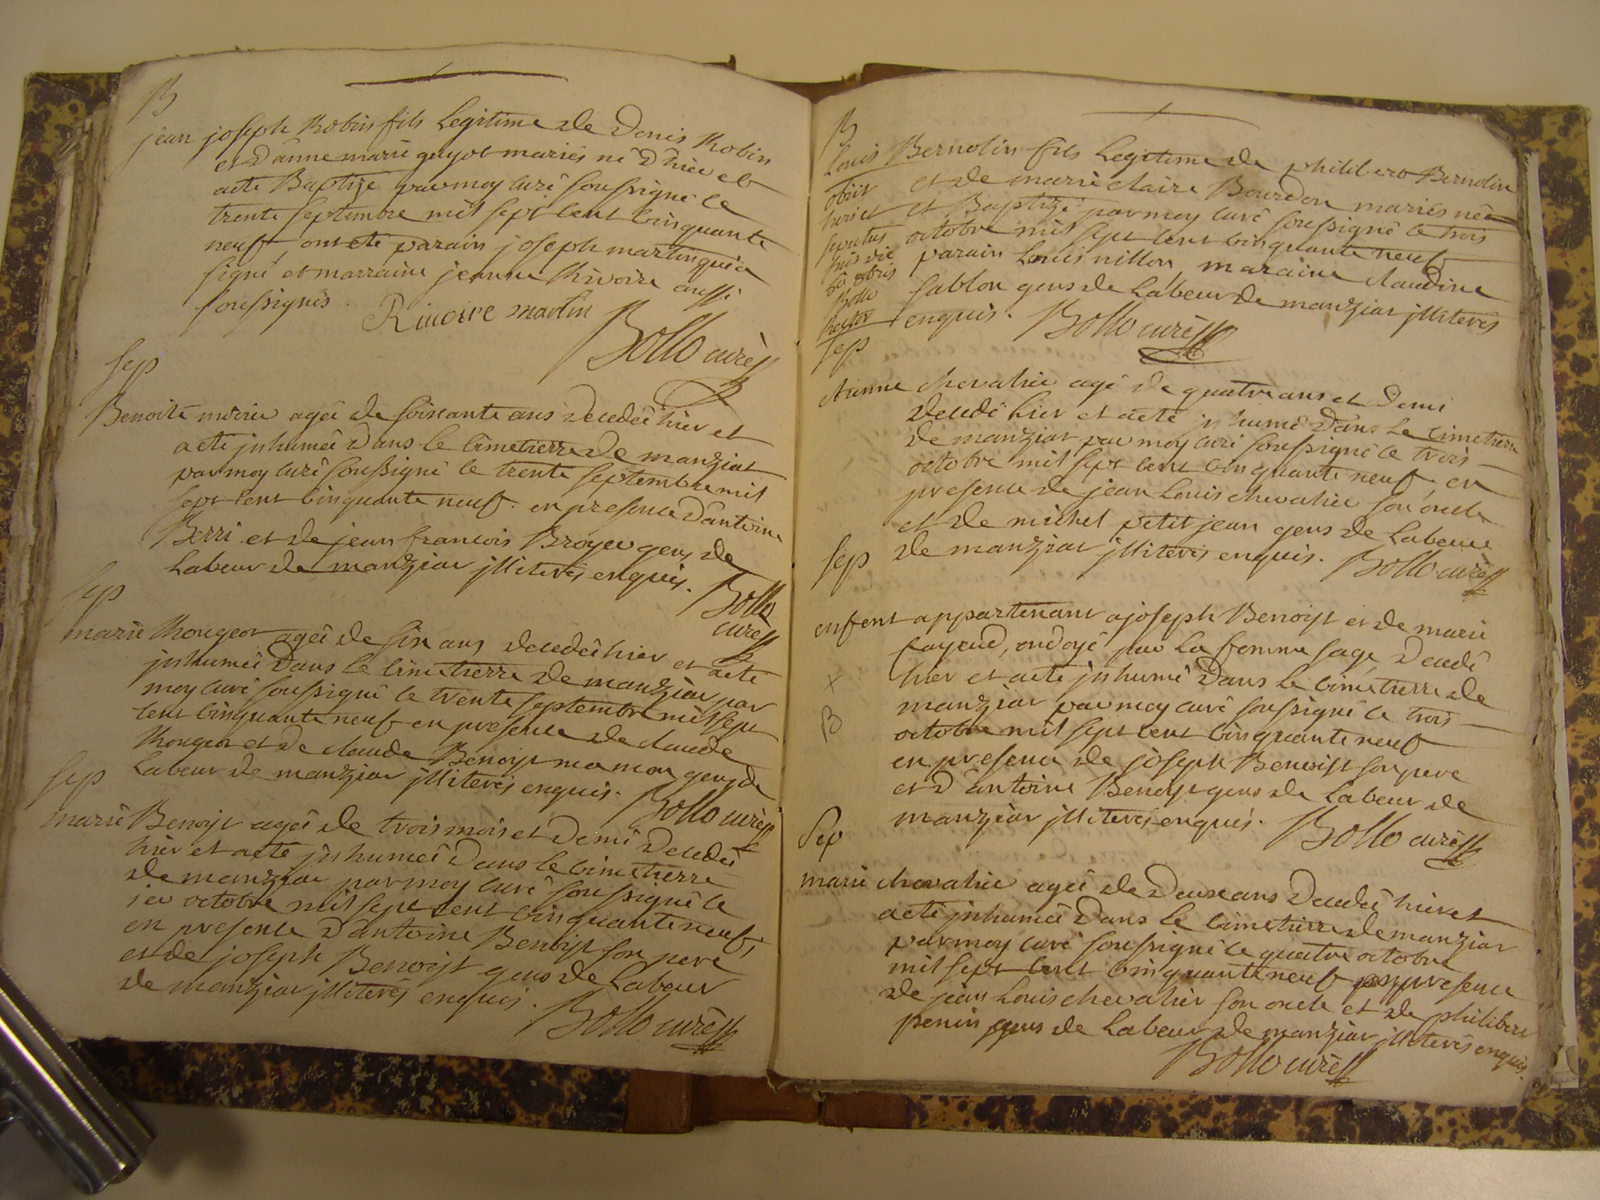 B
jean joseph Robin fils Legitime de Denis Robin
et d'anne marie guyot mariés né d'hier et
aeté Baptizé par moy curé soussigné le
trente septembre mil sept cent cinquante
neuf, ont eté parain joseph martin qui a
signé, et marraine jeanne Rivoire aussi
soussignés.
Rivoire martin
Bollo curé
sep
Benoite agée de soixante ans decedée hier et
aeté jnhumée Dans le cimetierre de manziat
par moy curé soussigné le trente septembre mil
sept cent cinquante neuf. en presence d'antoine
Berri et de jean francois Broyer gens de
Labeur de manziat jlliterés enquis.
Bollo
curé
sep
marie Mongeot agée de six ans decedée hier et aeté
jnhumée Dans le cimetierre de manziat par
moy curé soussigné le trente septembre mil sept
cent cinquante neuf en presence de claude
Mongeot et de claude Benoist gens de
Labeur de manziat jlliterés enquis.
Bollo curé
sep
marie Benoist agée de trois mois et Demi Decedée
hier et aeté jnhumée Dans le cimetierre
de manziat par moy curé soussigné le
ier octobre mil sept cent cinquante neuf,
en presence d'antoine Benoist son pere
et de joseph Benoist gens de Labeur
de manziat jlliterés enquis.
Bollo curé
B
Louis Bernolin fils Legitime de philibert Bernolin
et de marie claire Bourdon mariés né
et Baptizé par moy curé soussigné le trois
octobre mil sept cent cinquante neuf
parain Louis nillon, maraine claudine
sablon gens de Labeur de manziat jlliterés
enquis.
Bollo curé
obiit
sepultus
Bollo
sep
etienne chevalier agé de quatre ans et Demi
decedé hier et aeté jnhumé Dans Le cimetierre
de manziat par moy curé soussigné le trois
octobre mil sept cent cinquante neuf, en
presence de jean Louis chevalier son oncle
et de michel petit jean gens de Labeur
de manziat jlliterés enquis.
Bollo curé
sep
enfent appartenant a joseph Benoist et de marie
fayend, ondoyé par La femme sage, Decedé
hier et aeté jnhumé Dans Le cimetierre de
manziat par moy curé soussigné le trois
octobre mil sept cent cinquante neuf
en presence de joseph Benoist son pere
et D'antoine Benoist gens de Labeur de
manziat jlliterés enquis.
Bollo curé
x
B
Sep
marie chevalier agée de Deux ans Decedée hier et
aeté jnhumée Dans Le cimetierre de manziat
par moy curé soussigné le quatre octobre
mil sept cent cinquante neuf en presence
de jean Louis chevalier son oncle et de philibert
penin gens de Labeur de manziat jlliterés enquis.
Bollo curé